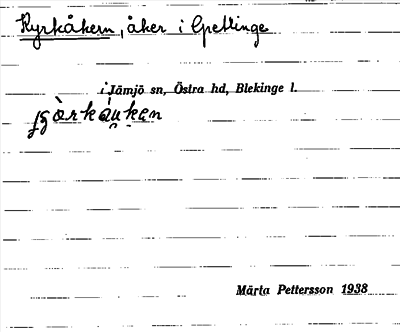 Kyrkåkern, åker i Gpetlinge
i Jämjö sn, Östra hd, Blekinge l.
Märta Pettersson 1938